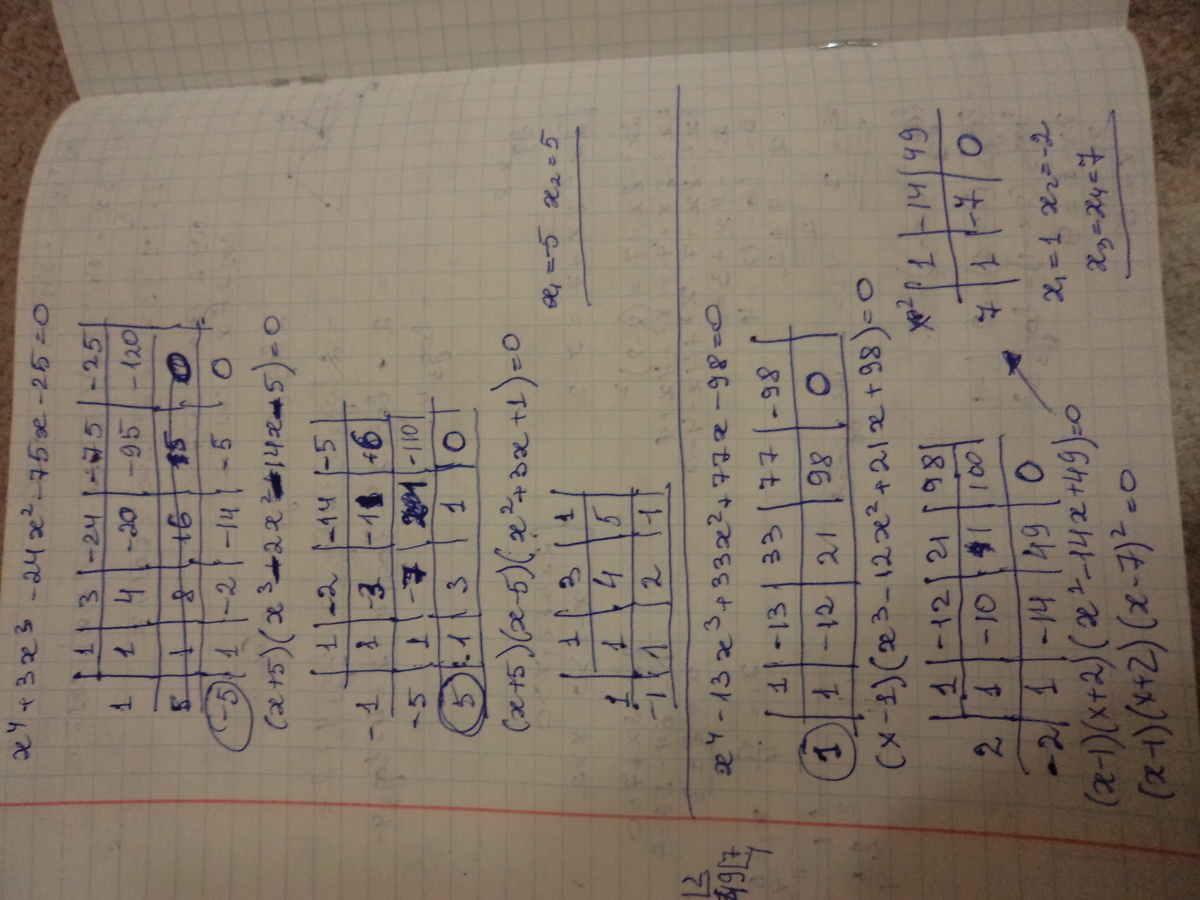 x⁴+3x³-24x²-75x-25=0
| 1 | 3 | -24 | -75 | -25
1 | 1 | 4 | -20 | -95 | -120
5 | 1 | 8 | 16 | | 0
-5 | 1 | -2 | -14 | -5 | 0
(x+5)(x³-2x²-14x-5)=0
| 1 | -2 | -14 | -5
-1 | 1 | -3 | -11 | +6
-5 | 1 | -7 | | -110
5 | 1 | 3 | 1 | 0
(x+5)(x-5)(x²+3x+1)=0
| 1 | 3 | 1
1 | 1 | 4 | 5
-1 | 1 | 2 | -1
x₁=-5 x₂=5
x⁴-13x³+33x²+77x-98=0
| 1 | -13 | 33 | 77 | -98
1 | 1 | -12 | 21 | 98 | 0
(x-1)(x³-12x²+21x+98)=0
| 1 | -12 | 21 | 98
2 | 1 | -10 | 1 | 100
-2 | 1 | -14 | 49 | 0
(x-1)(x+2)(x²-14x+49)=0
(x-1)(x+2)(x-7)²=0
| 1 | -14 | 49
7 | 1 | -7 | 0
x₁=1 x₂=-2
x₃=x₄=7